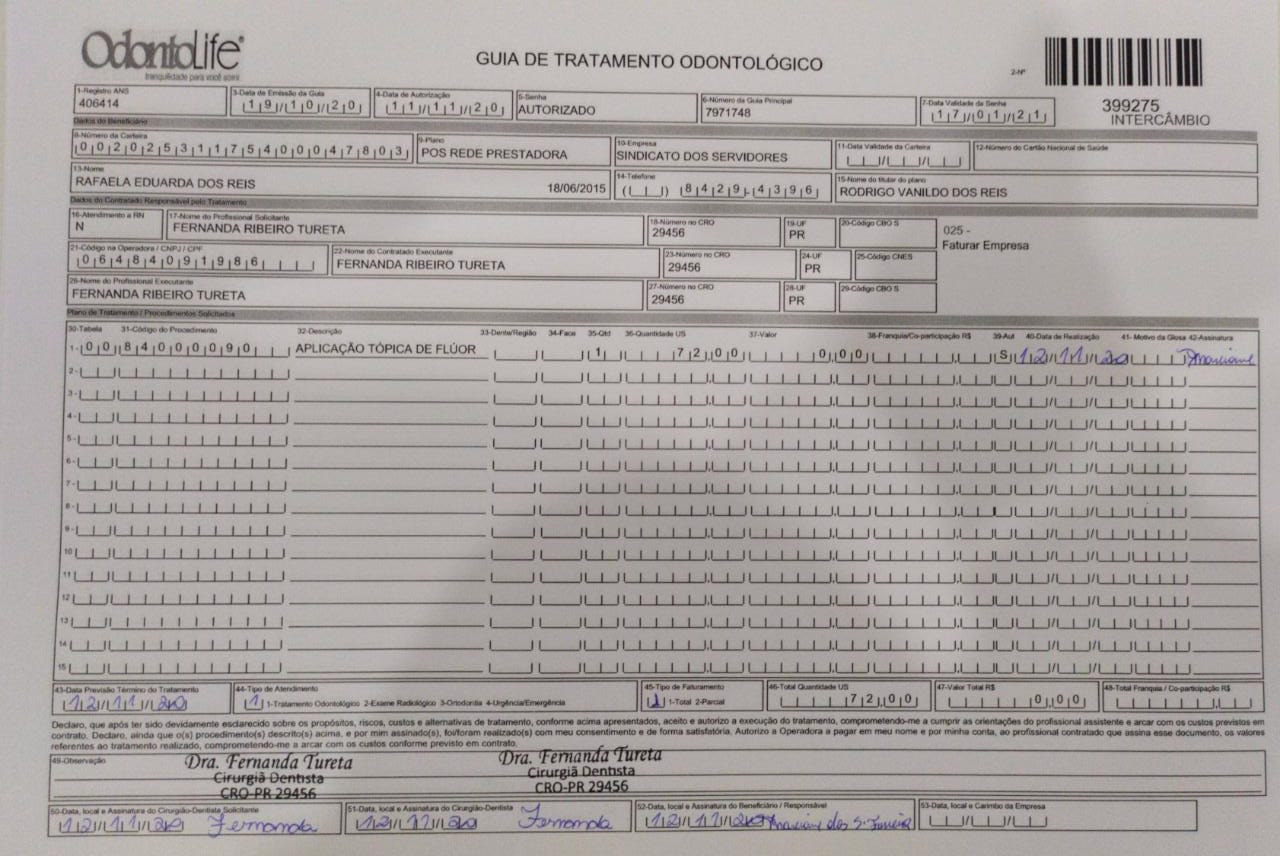 OdontoLife®
tranquilidade para você sorrir
GUIA DE TRATAMENTO ODONTOLÓGICO
2-Nº
399275
INTERCÂMBIO
1-Registro ANS
406414
3-Data de Emissão da Guia
19/10/20
4-Data de Autorização
11/11/20
5-Senha
AUTORIZADO
6-Número da Guia Principal
7971748
7-Data Validade da Senha
17/01/21
Dados do Beneficiário
8-Número da Carteira
00202531175400047803
9-Plano
POS REDE PRESTADORA
10-Empresa
SINDICATO DOS SERVIDORES
11-Data Validade da Carteira
12-Número do Cartão Nacional de Saúde
13-Nome
RAFAELA EDUARDA DOS REIS 18/06/2015
14-Telefone
( ) 8429-4396
15-Nome do titular do plano
RODRIGO VANILDO DOS REIS
Dados do Contratado Responsável pelo Tratamento
16-Atendimento a RN
N
17-Nome do Profissional Solicitante
FERNANDA RIBEIRO TURETA
18-Número no CRO
29456
19-UF
PR
20-Código CBO S
025 -
Faturar Empresa
21-Código na Operadora / CNPJ / CPF
06484091986
22-Nome do Contratado Executante
FERNANDA RIBEIRO TURETA
23-Número no CRO
29456
24-UF
PR
25-Código CNES
26-Nome do Profissional Executante
FERNANDA RIBEIRO TURETA
27-Número no CRO
29456
28-UF
PR
29-Código CBO S
Plano de Tratamento / Procedimentos Solicitados
30-Tabela 31-Código do Procedimento 32-Descrição 33-Dente/Região 34-Face 35-Qtd 36-Quantidade US 37-Valor 38-Franquia/Co-participação R$ 39-Aut 40-Data de Realização 41- Motivo da Glosa 42-Assinatura
1- 00 84000090 APLICAÇÃO TÓPICA DE FLÚOR 1 72,00 0,00 S 12/11/20
2-
3-
4-
5-
6-
7-
8-
9-
10
11
12
13
14
15
43-Data Previsão Término do Tratamento
12/11/20
44-Tipo de Atendimento
1 1-Tratamento Odontológico 2-Exame Radiológico 3-Ortodontia 4-Urgência/Emergência
45-Tipo de Faturamento
1 1-Total 2-Parcial
46-Total Quantidade US
72,00
47-Valor Total R$
0,00
48-Total Franquia / Co-participação R$
Declaro, que após ter sido devidamente esclarecido sobre os propósitos, riscos, custos e alternativas de tratamento, conforme acima apresentados, aceito e autorizo a execução do tratamento, comprometendo-me a cumprir as orientações do profissional assistente e arcar com os custos previstos em
contrato. Declaro, ainda que o(s) procedimento(s) descrito(s) acima, e por mim assinado(s), foi/foram realizado(s) com meu consentimento e de forma satisfatória. Autorizo a Operadora a pagar em meu nome e por minha conta, ao profissional contratado que assina esse documento, os valores
referentes ao tratamento realizado, comprometendo-me a arcar com os custos conforme previsto em contrato.
49-Observação
Dra. Fernanda Tureta
Cirurgiã Dentista
CRO-PR 29456
Dra. Fernanda Tureta
Cirurgiã Dentista
CRO-PR 29456
50-Data, local e Assinatura do Cirurgião-Dentista Solicitante
12/11/20 Fernanda
51-Data, local e Assinatura do Cirurgião-Dentista
12/11/20 Fernanda
52-Data, local e Assinatura do Beneficiário / Responsável
12/11/20 dos S.
53-Data, local e Carimbo da Empresa